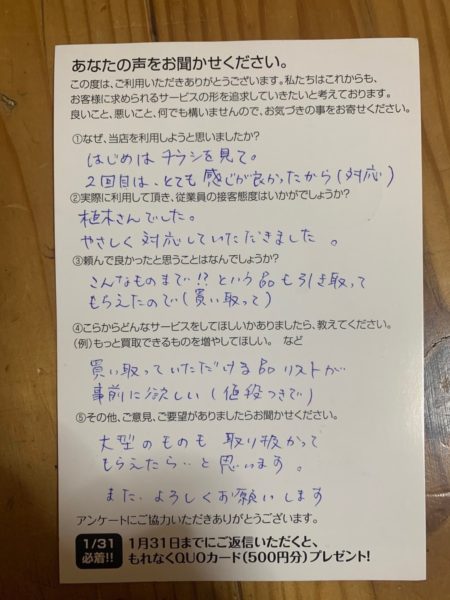 あなたの声をお聞かせください。
この度は、ご利用いただきありがとうございます。私たちはこれからも、
お客様に求められるサービスの形を追求していきたいと考えております。
良いこと、悪いこと、何でも構いませんので、お気づきの事をお寄せください。
①なぜ、当店を利用しようと思いましたか?
はじめは チラシを見て。
2回目は、とても 感じが良かったから(対応)
②実際に利用して頂き、従業員の接客態度はいかがでしょうか?
植木さんでした。
やさしく 対応していただきました。
③頼んで良かったと思うことはなんでしょうか?
こんなものまで!?という品も引き取って
もらえたので(買い取って)
④こらからどんなサービスをしてほしいかありましたら、教えてください。
(例)もっと買取できるものを増やしてほしい。 など
買い取っていただける品リストが
事前に欲しい(値段つきで)
⑤その他、ご意見、ご要望がありましたらお聞かせください。
大型のものも 取り扱かって
もらえたら…と 思います。
また、よろしくお願いします
アンケートにご協力いただきありがとうございます。
1/31
必着!!
1月31日までにご返信いただくと、
もれなくQUOカード(500円分)プレゼント!